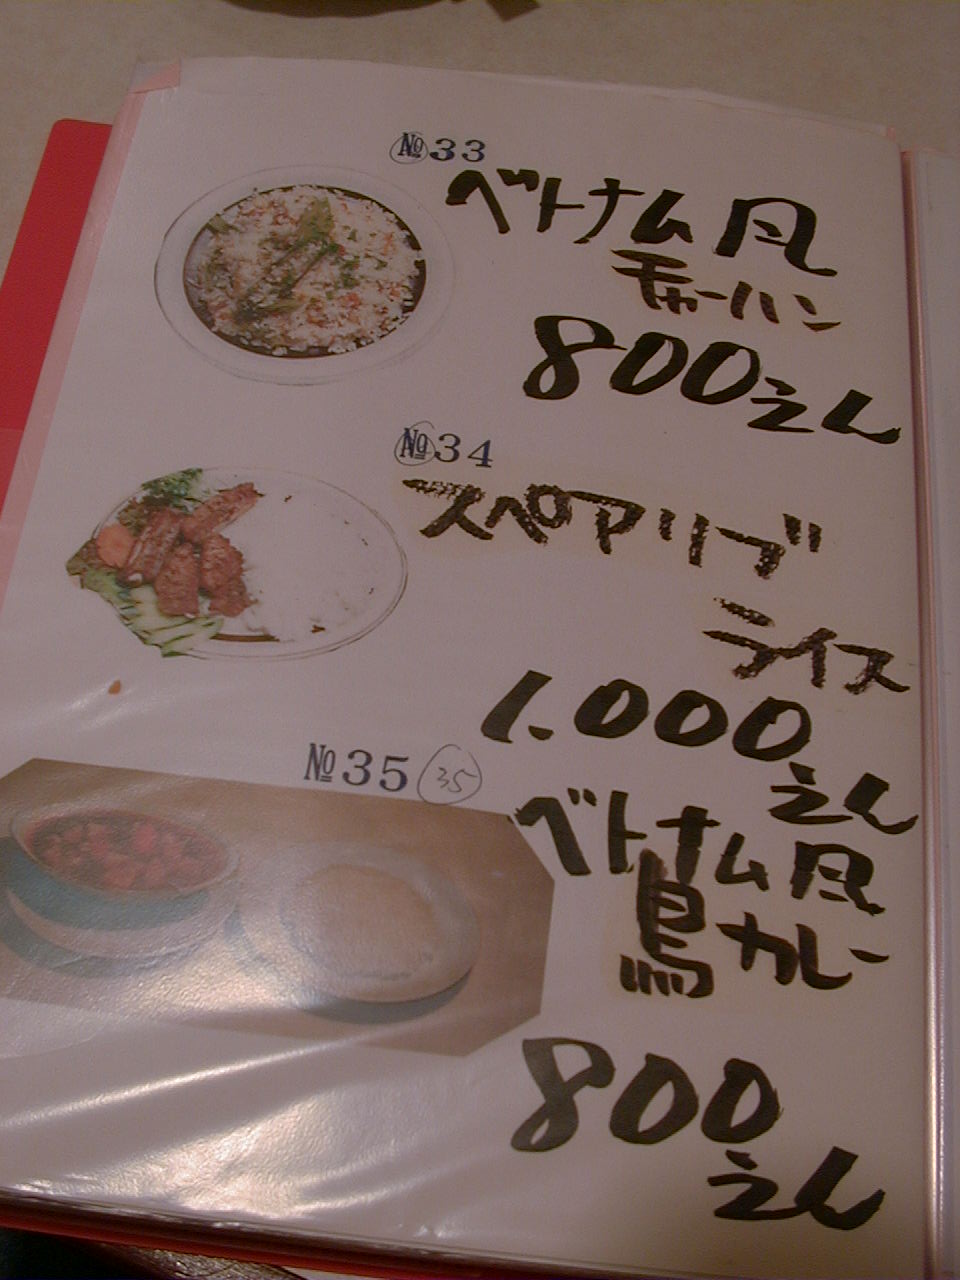 №33
ベトナム風
チャーハン
800えん
№34
スペアリブ
ライス
1.000
えん
№35 35
ベトナム風
鳥カレー
800
えん